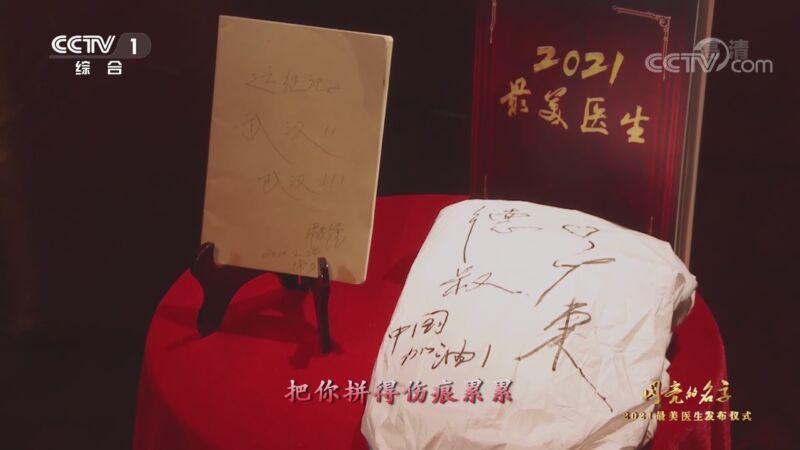 CCTV 1
综合
高清
CCTV.com
2021
最美医生
武汉!!
武汉!!!
德叔
广东
中国
加油!
把你拼得伤痕累累
闪亮的名字
2021最美医生发布仪式